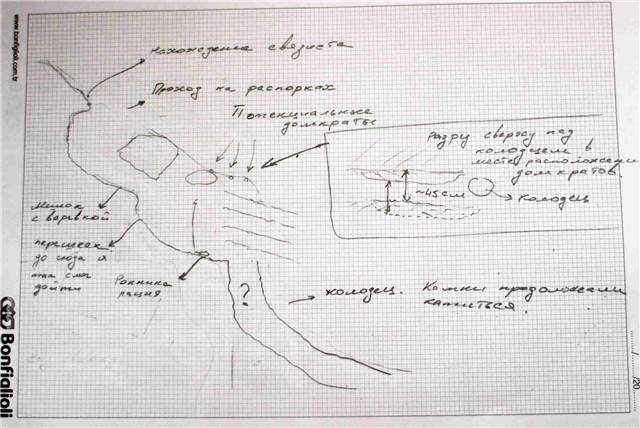 www.bonfiglioli.com.tr
Нахождение связиста
Проход на распорках
Потенциальные
домкраты
Разру сверху над
колодцем в
месте расположения
домкратов.
~45см
Колодец
Мешок
с веревкой
перешеек
до сюда я
смог
дойти
рация
?
колодец. Камни продолжали
катиться.
Bonfiglioli
/20